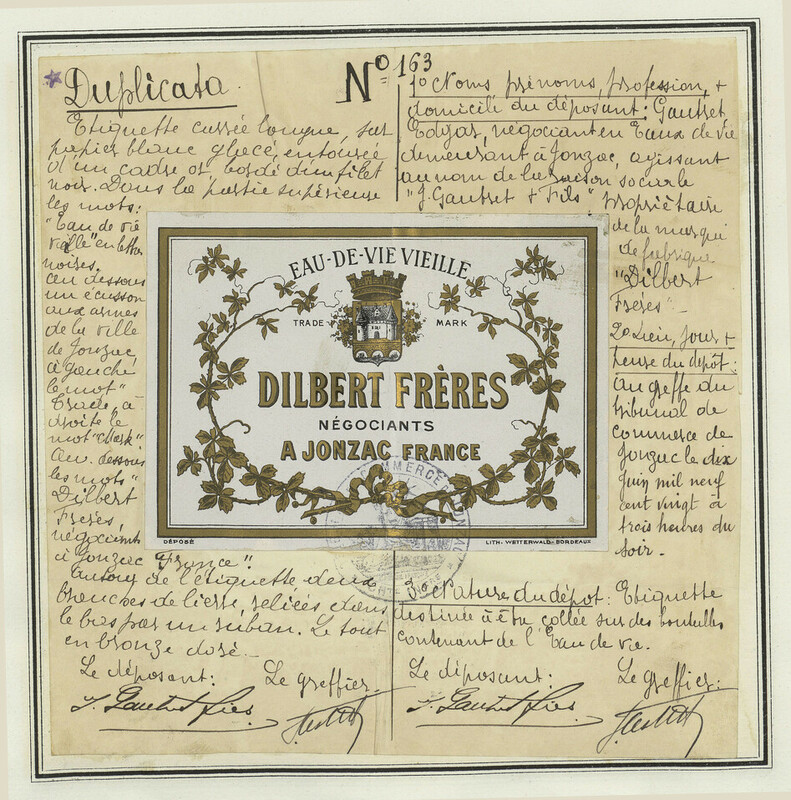 Duplicata.
Nº 163
Etiquette carrée longue, sur
papier blanc glacé, entourée
d'un cadre or, bordé d'un filet
noir. Dans la partie supérieure
les mots:
"Eau de vie
vieille" en lettres
noires.
au dessous
un écusson
aux armes
de la ville
de Jonzac,
à gauche
le mot "
Trade", à
droite le
mot "Mark"
au dessous
les mots "
Dilbert
Frères,
négociants
à Jonzac France".
autour de l'étiquette deux
branches de lierre, reliées dans
le bas par un ruban. Le tout
en bronze doré.
Le déposant: Le greffier:
J. Gautret fils
1o Noms, prénoms, profession, +
domicile du déposant: Gautret
Edgar, négociant en Eaux de vie
demeurant à Jonzac, agissant
au nom de la raison sociale
"J. Gautret + Fils" propriétaire
de la marque
de fabrique
"Dilbert
Frères" -
2o Lieu, jour +
heure du dépôt:
au greffe du
tribunal de
commerce de
Jonzac le dix
juin mil neuf
cent vingt à
trois heures du
soir.-
3o Nature du dépôt: Etiquette
destinée à être collée sur des bouteilles
contenant de l'Eau de vie.
Le déposant: Le greffier:
J. Gautret fils
EAU-DE-VIE VIEILLE
TRADE MARK
DILBERT FRÈRES
NÉGOCIANTS
A JONZAC FRANCE
DÉPOSÉ LITH. WETTERWALD-BORDEAUX
COMMERCE